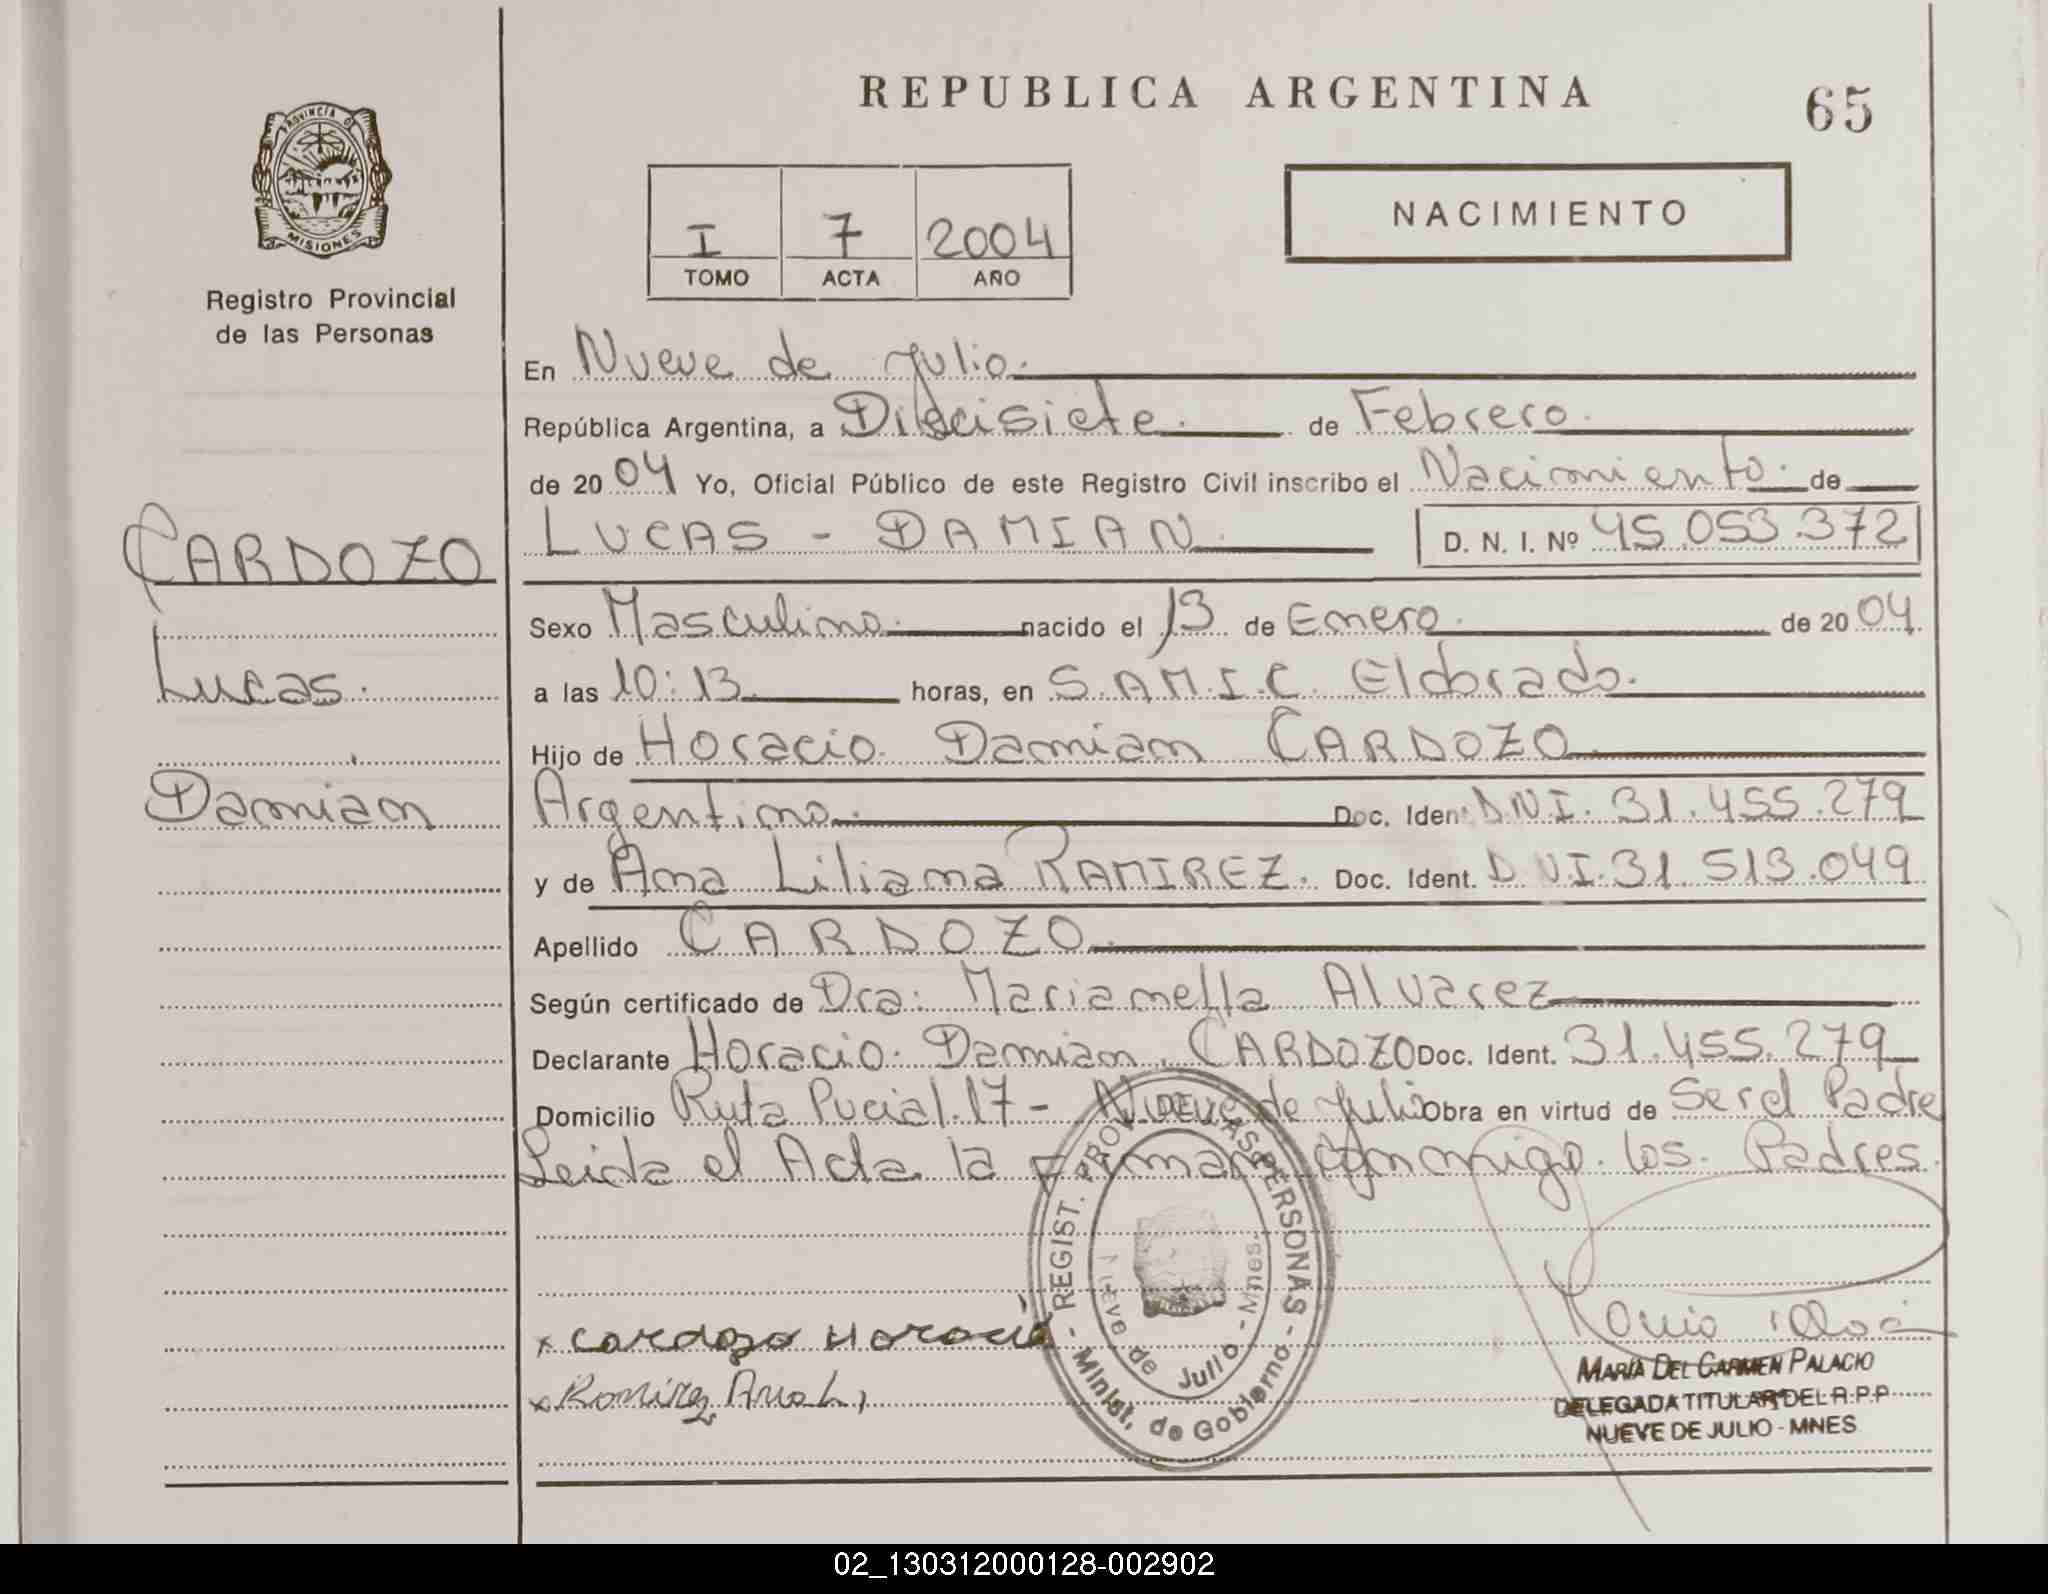 REPUBLICA ARGENTINA
65
PROVINCIA DE MISIONES
Registro Provincial
de las Personas
I 7 2004
TOMO ACTA AÑO
NACIMIENTO
En Nueve de Julio.
República Argentina, a Diecisiete. de Febrero.
de 2004 Yo, Oficial Público de este Registro Civil inscribo el Nacimiento. de
CARDOZO
Lucas.
Damián
LUCAS - DAMIAN. D. N. I. Nº 45.053.372
Sexo Masculino. nacido el 13 de Enero. de 2004.
a las 10:13. horas, en S.A.M.I.C. Eldorado.
Hijo de Horacio. Damian CARDOZO.
Argentino. Doc. Iden. DNI. 31.455.279
y de Ana Liliana RAMIREZ. Doc. Ident. DNI. 31.513.049
Apellido CARDOZO.
Según certificado de Dra: Marianella Alvarez
Declarante Horacio. Damian. CARDOZO Doc. Ident. 31.455.279
Domicilio Ruta Pucial. 17 - Nueve de Julio Obra en virtud de Ser el Padre
Leida el Acta la Firman conmigo. los. Padres.
REGIST. PROV. DE LAS PERSONAS - Minist. de Gobierno -
Nueve de Julio - Mnes.
x Cardozo Horacio
x Ramirez Ana L.
MARIA DEL CARMEN PALACIO
DELEGADA TITULAR DEL R.P.P
NUEVE DE JULIO - MNES
02_130312000128-002902